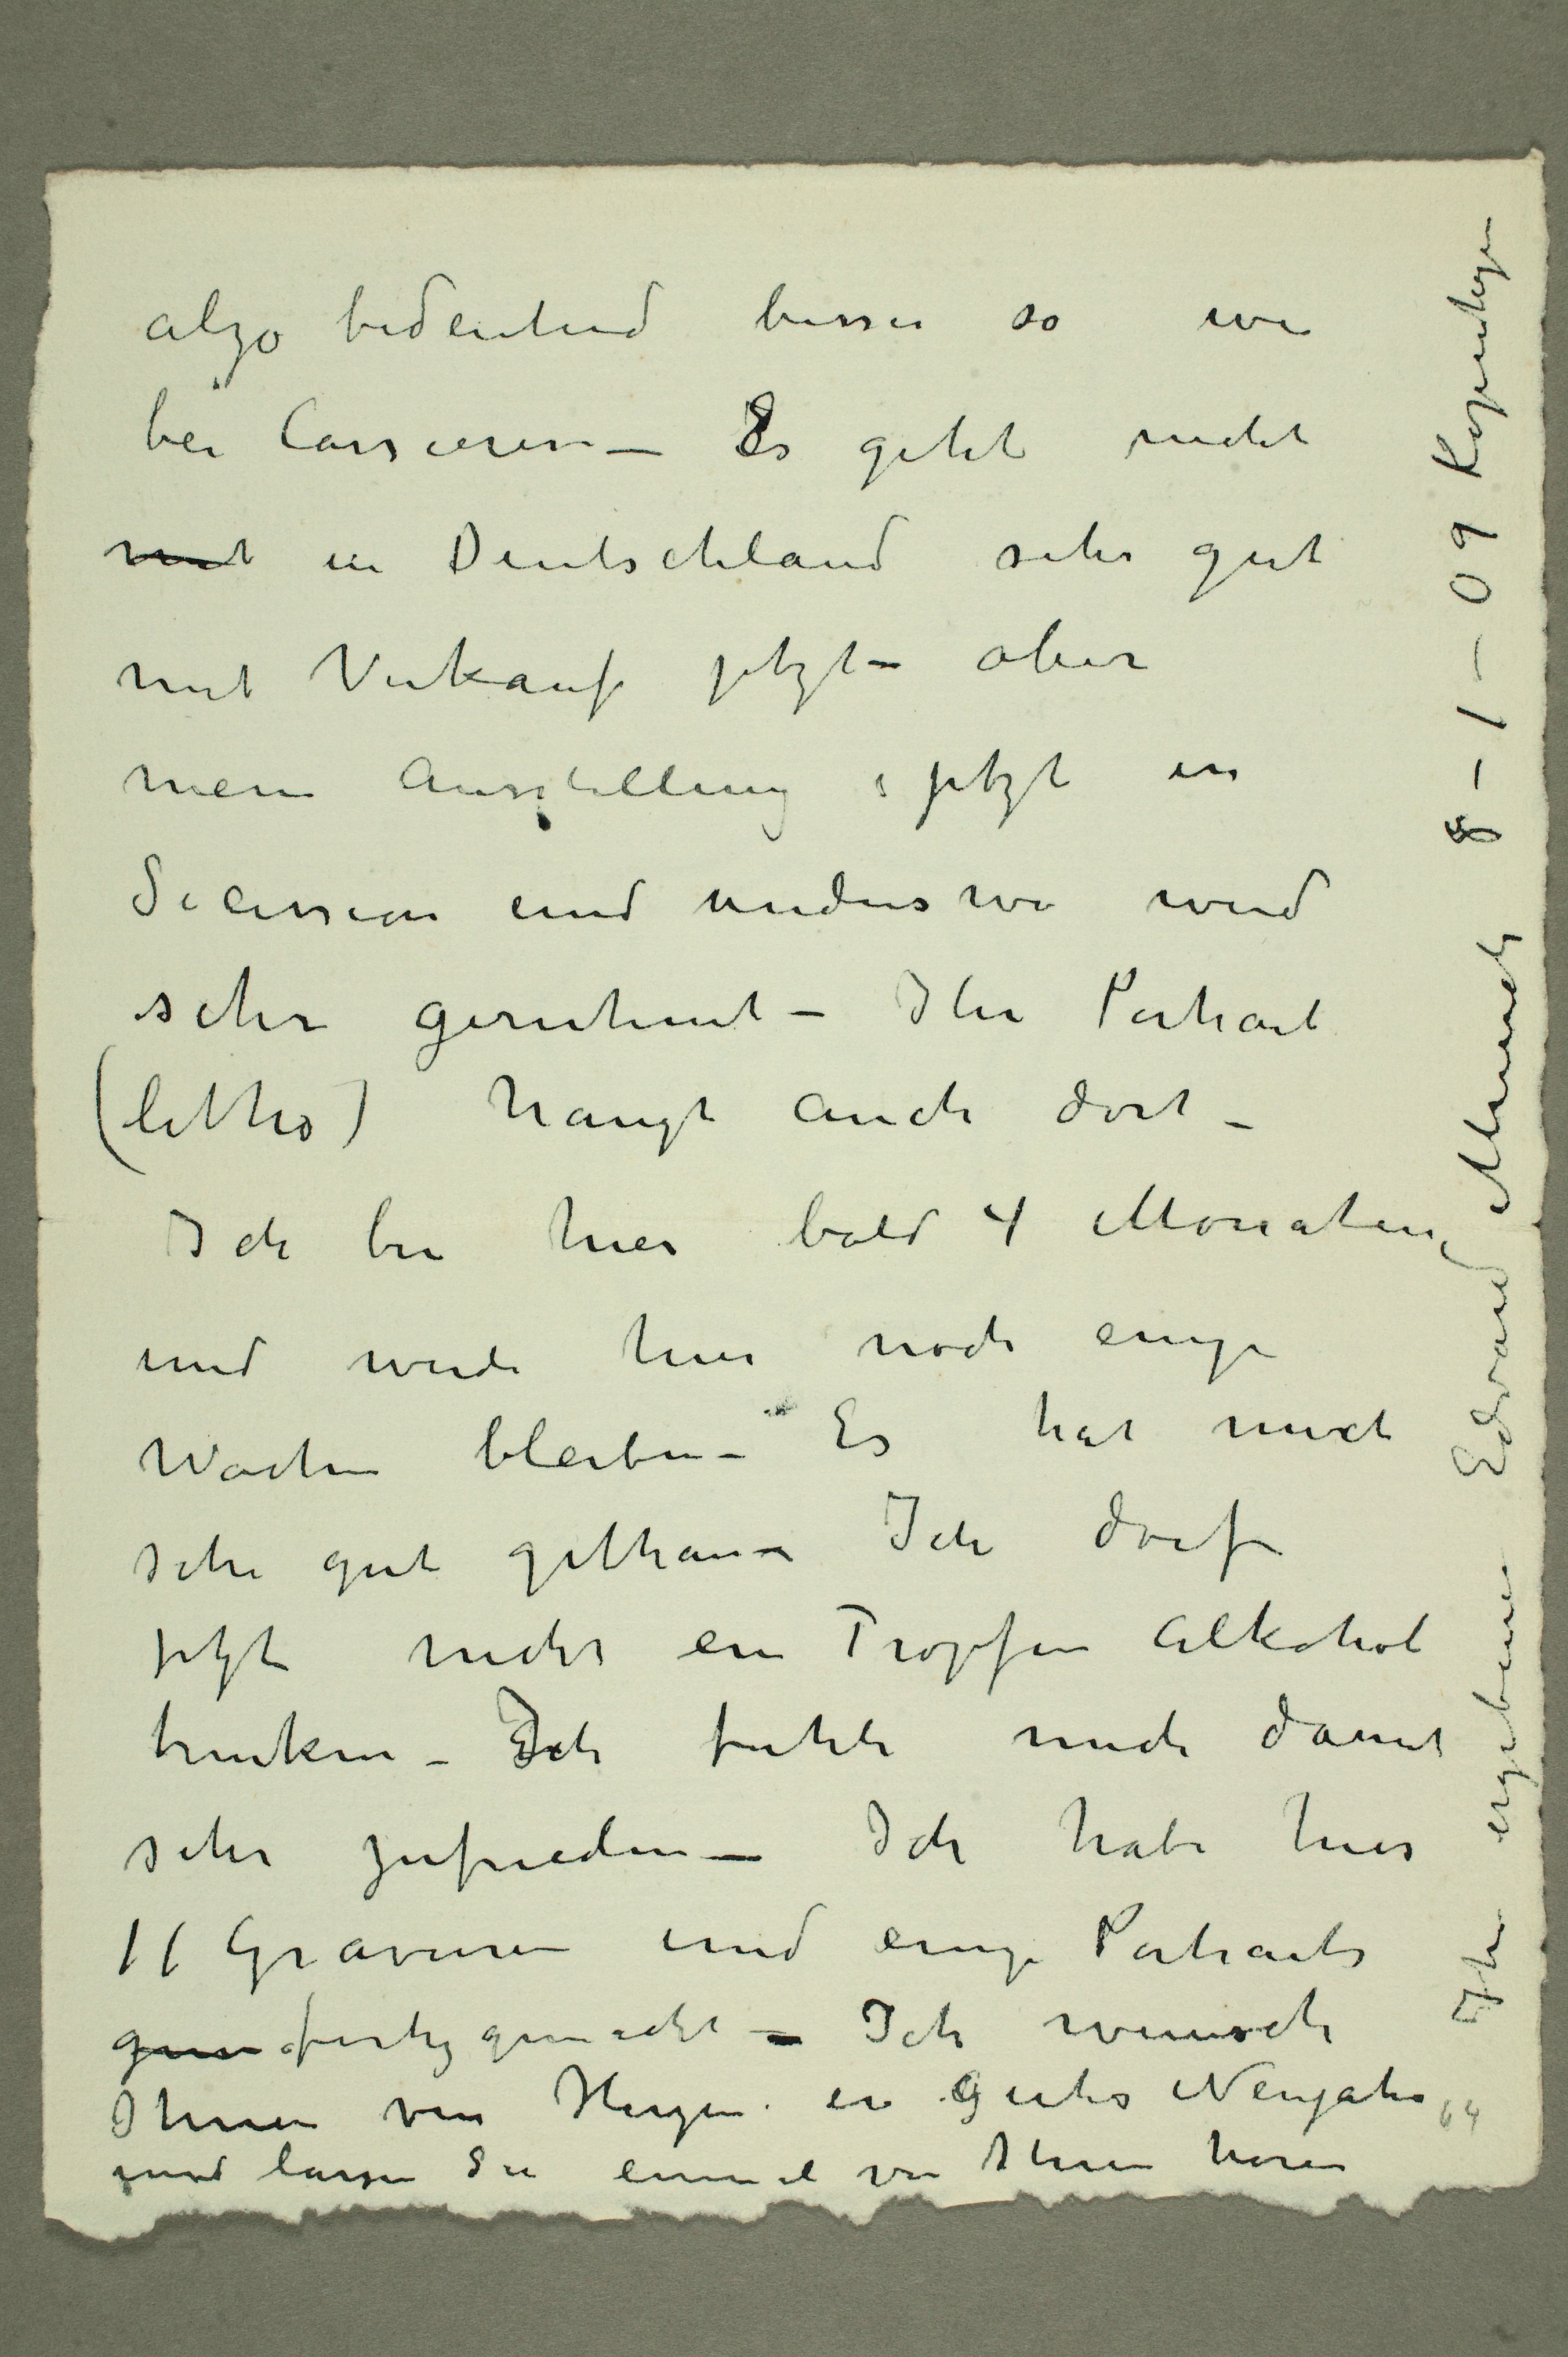 alzo bedeutend besser so wie
bei Cassierer – Es geht nicht
mit in Deutschland sehr gut
mit Verkauf jetzt – aber
mein Ausstellung jetzt in
Secession und anderswo wird
sehr geruhmt – Ihr Portrait
(litho) hangt auch dort –
Ich bin hier bald 4 Monaten,
und werde hier noch einige
Wochen bleiben – Es hat mich
sehr gut gethan – Ich darf
jetzt nicht ein Tropfen Alkohol
trinken – Ich fuhle mich damit
sehr zufrieden – Ich habe hier
11 Gravuren und einige Portraits
fertig gemacht – Ich wunsche
Ihnen von Herzen ein Gutes Neujahr
und lassen Sie einmal von Ihnen horen
Ihr ergebene Edvard Munch 8–1–09 Kopenhagen
64